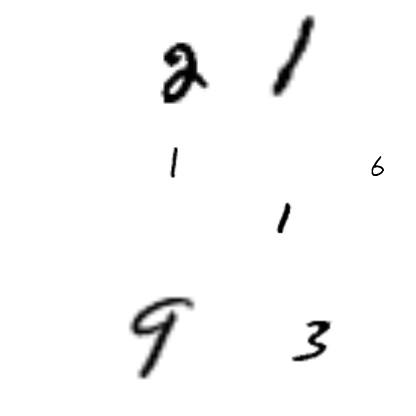 2 1
1 6
1
9 3